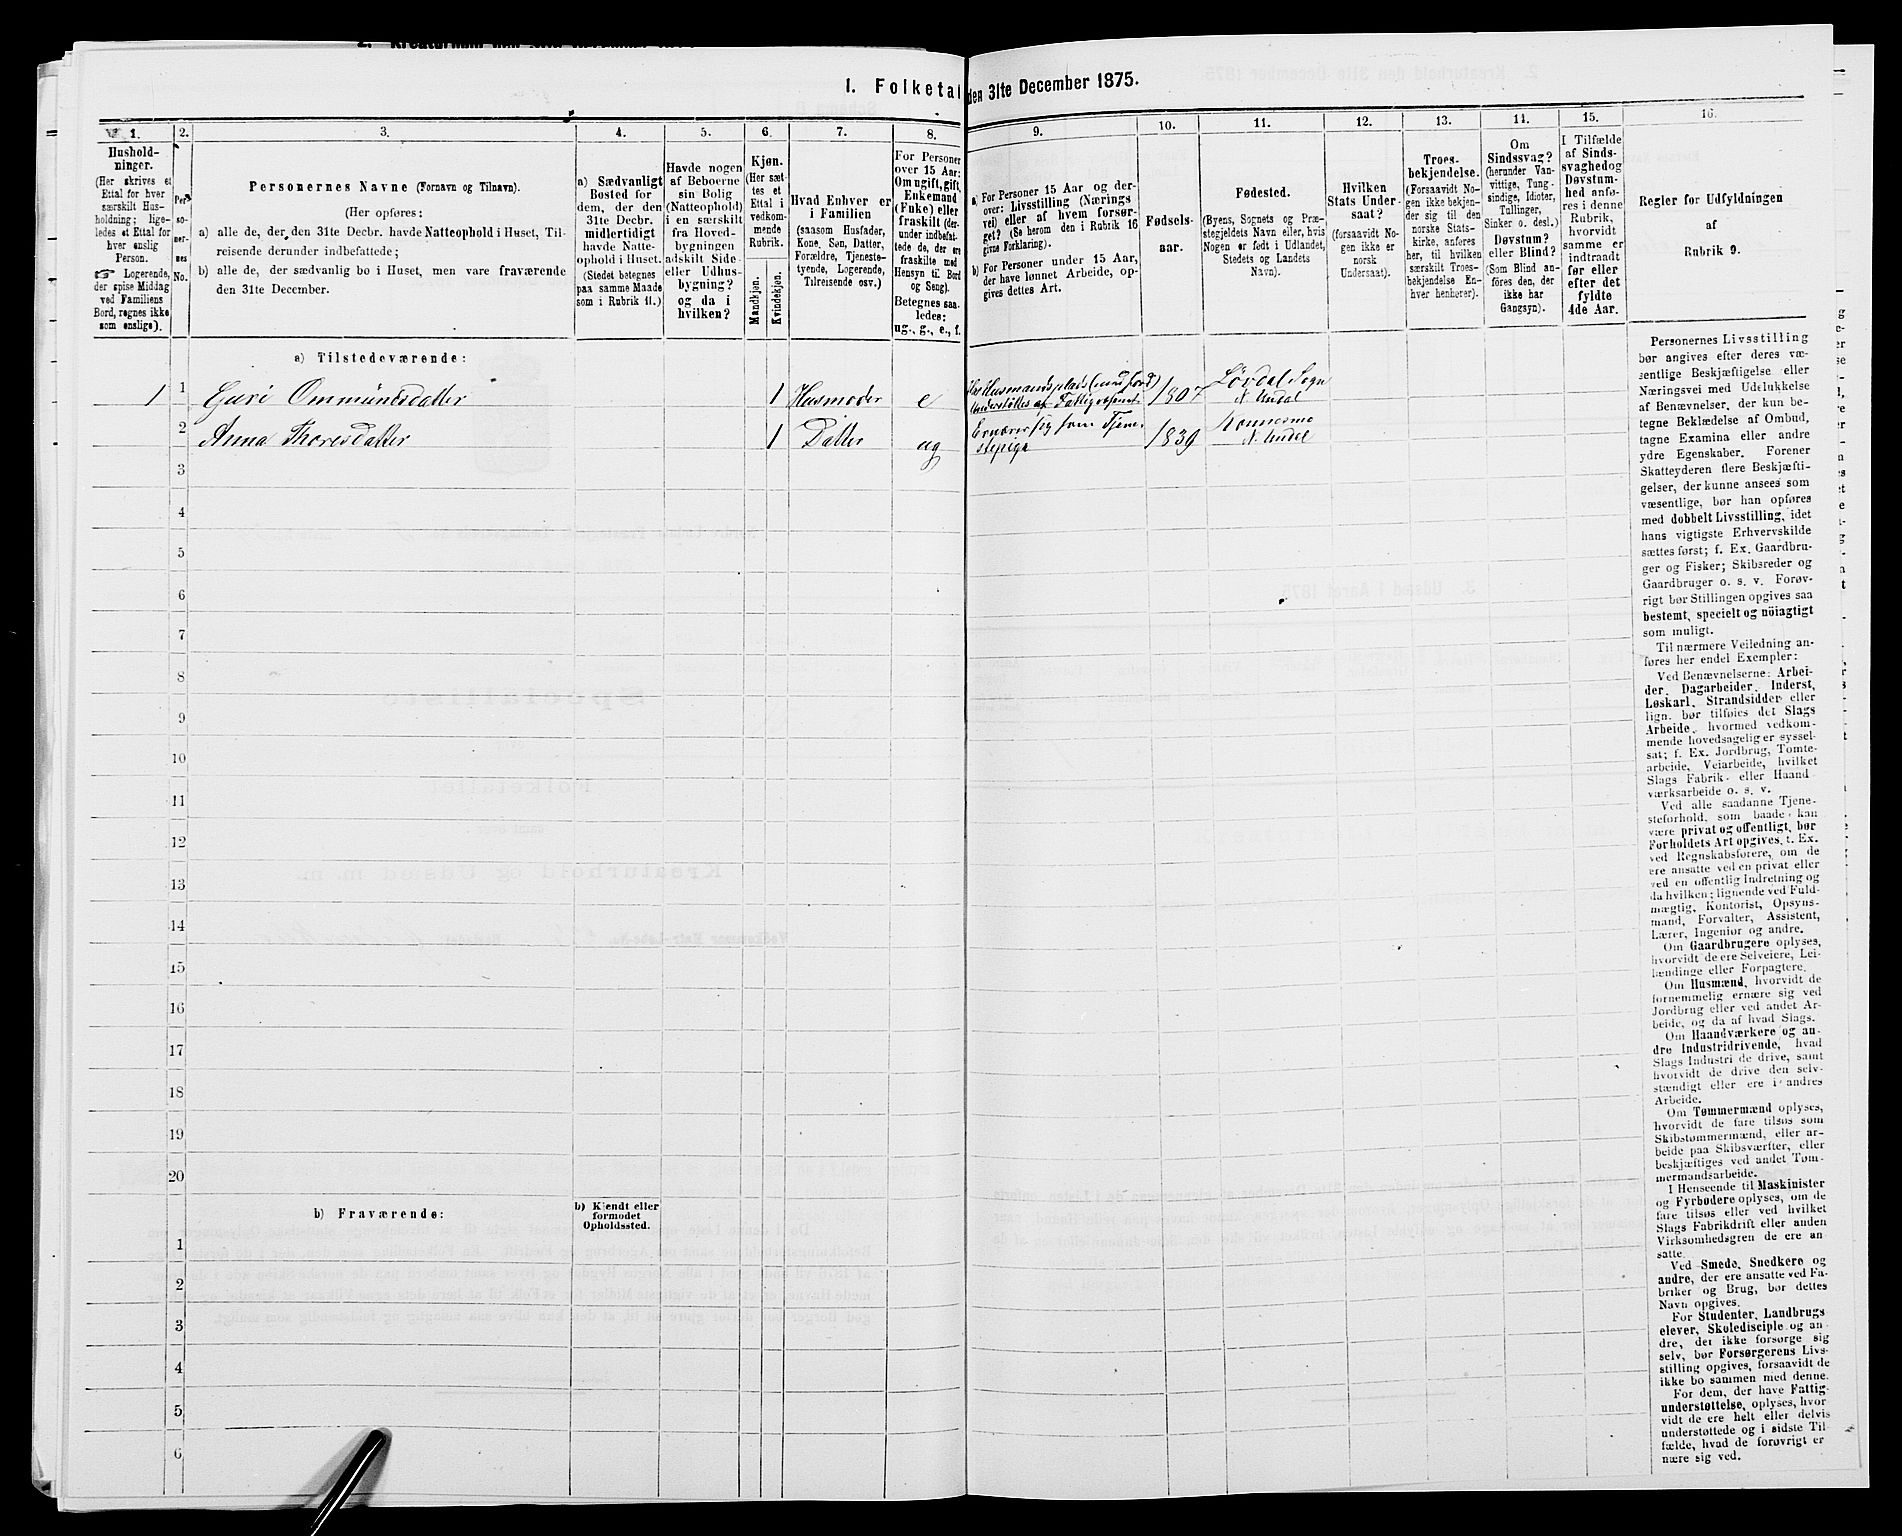 I. Folketal den 31te December 1875.
1.
Hushold-
ninger.
(Her skrives et
Ettal for hver
særskilt Hus-
holdning; lige-
ledes et Ettal for
hver enslig
Person.
☞ Logerende,
der spise Middag
ved Familiens
Bord, regnes ikke
som enslige).
2.
Per-
so-
ner-
nes
No.
3.
Personernes Navne (Fornavn og Tilnavn).
(Her opføres:
a) alle de, der den 31te Decbr. havde Natteophold i Huset, Til-
reisende derunder indbefattede;
b) alle de, der sædvanlig bo i Huset, men vare fraværende
den 31te December.
4.
a) Sædvanligt
Bosted for
dem, der den
31te Decbr.
midlertidigt
havde Natte-
ophold i Huset.
(Stedet betegnes
paa samme Maade
som i Rubrik 11.)
5.
Havde nogen
af Beboerne
sin Bolig
(Natteophold)
i en særskilt
fra Hoved-
bygningen
adskilt Side-
eller Udhus-
bygning?
og da i
hvilken?
6.
Kjøn.
(Her sæt-
tes et
Ettal i
vedkom-
mende
Rubrik.
Mandkjøn.
Kvindekjøn.
7.
Hvad Enhver er
i Familien
(saasom Husfader,
Kone, Søn, Datter,
Forældre, Tjeneste-
tyende, Logerende,
Tilreisende osv.)
8.
For Personer
over 15 Aar:
Om ugift, gift,
Enkemand
(Enke) eller
fraskilt (der-
under indbefat-
tede de, der ere
fraskilte med
Hensyn til Bord
og Seng).
Betegnes saa-
ledes:
ug., g., e., f.
9.
a) For Personer 15 Aar og der-
over: Livsstilling (Nærings-
vei) eller af hvem forsør-
get? (Se herom den i Rubrik 16
givne Forklaring).
b) For Personer under 15 Aar,
der have lønnet Arbeide, op-
gives dettes Art.
10.
Fødsels-
aar.
11.
Fødested.
(Byens, Sognets og Præ-
stegjeldets Navn eller, hvis
Nogen er født i Udlandet,
Stedets og Landets
Navn).
12.
Hvilken
Stats Under-
saat?
(forsaavidt No-
gen ikke er
norsk
Undersaat).
13.
Troes-
bekjendelse.
(Forsaavidt No-
gen ikke bekjen-
der sig til den
norske Stats-
kirke, anføres
her, til hvilken
særskilt Troes-
bekjendelse En-
hver henhører).
14.
Om
Sindssvag?
(herunder Van-
vittige, Tung-
sindige, Idioter,
Tullinger,
Sinker o. desl.)
Døvstum?
eller Blind?
(Som Blind an-
føres den, der
ikke har
Gangsyn).
15.
I Tilfælde
af Sinds-
svaghed og
Døvstum-
hed anfø-
res i denne
Rubrik,
hvorvidt
samme er
indtraadt
før eller
efter det
fyldte
4de Aar.
16.
Regler for Udfyldningen
af
Rubrik 9.
a) Tilstedeværende:
1 1 Guri Ommundsdatter 1 Husmoder e Har Husmandsplads (uns Jord) Understøttes af Fattigvæsenet 1807 Lövdal Sogn N. Undal
2 Anna Thoresdatter 1 Datter ug Ernærer sig som Tjene- stepige 1839 Konnesmo N. Undal
3
4
5
6
7
8
9
10
11
12
13
14
15
16
17
18
19
20
b) Fraværende:
b) Kjendt eller
formodet
Opholdssted.
1
2
3
4
5
6
Personernes Livsstilling
bør angives efter deres væ-
sentlige Beskjæftigelse eller
Næringsvei med Udelukkelse
af Benævnelser, der kun be-
tegne Beklædelse af Ombud,
tagne Examina eller andre
ydre Egenskaber. Forener
Skatteyderen flere Beskjæfti-
gelser, der kunne ansees som
væsentlige, bør han opføres
med dobbelt Livsstilling, idet
hans vigtigste Erhvervskilde
sættes først; f. Ex. Gaardbru-
ger og Fisker; Skibsreder og
Gaardbruger o. s. v. Forøv-
rigt bør Stillingen opgives saa
bestemt, specielt og nöiagtigt
som muligt.
Til nærmere Veiledning an-
føres her endel Exempler:
Ved Benævnelserne: Arbei-
der, Dagarbeider, Inderst,
Løskarl, Strandsidder eller
lign. bør tilføies det Slags
Arbeide, hvormed vedkom-
mende hovedsagelig er syssel-
sat; f. Ex. Jordbrug, Tomte-
arbeide, Veiarbeide, hvilket
Slags Fabrik- eller Haand
værksarbeide o. s. v.
Ved alle saadanne Tjene-
steforhold, som baade kan
være privat og offentligt, bør
Forholdets Art opgives, f. Ex.
ved Regnskabsførere, om de
ere ansatte ved en privat eller
ved en offentlig Indretning og
da hvilken; lignende ved Fuld-
mægtig, Kontorist, Opsyns-
mand, Forvalter, Assistent,
Lærer, Ingeniør og andre.
Om Gaardbrugere oplyses,
hvorvidt de ere Selveiere, Lei-
lændinge eller Forpagtere.
Om Husmænd, hvorvidt de
fornemmelig ernære sig ved
Jordbrug eller ved andet Ar-
beide, og da af hvad Slags.
Om Haandværkere og an-
dre Industridrivende, hvad
Slags Industri de drive, samt
hvorvidt de drive den selv-
stændigt eller ere i andres
Arbeide.
Om Tømmermænd oplyses,
hvorvidt de fare tilsøs som
Skibstømmermænd, eller ar-
beide paa Skibsværfter, eller
beskjæftiges ved andet Tøm-
mermandsarbeide.
I Henseende til Maskinister
og Fyrbødere oplyses, om de
fare tilsøs eller ved hvilket
Slags Fabrikdrift eller anden
Virksomhedsgren de ere an-
satte.
Ved Smede, Snedkere og
andre, der ere ansatte ved Fa-
briker og Brug, bør dettes
Navn opgives.
For Studenter, Landbrugs
elever, Skoledisciple og an-
dre, der ikke forsørge sig
selv, bør Forsørgerens Livs-
stilling opgives, forsaavidt de
ikke bo sammen med denne.
For dem, der have Fattig-
understøttelse, oplyses, hvor
vidt de ere helt eller delvis
understøttede og i sidste Til-
fælde, hvad de forøvrigt er
nære sig ved.